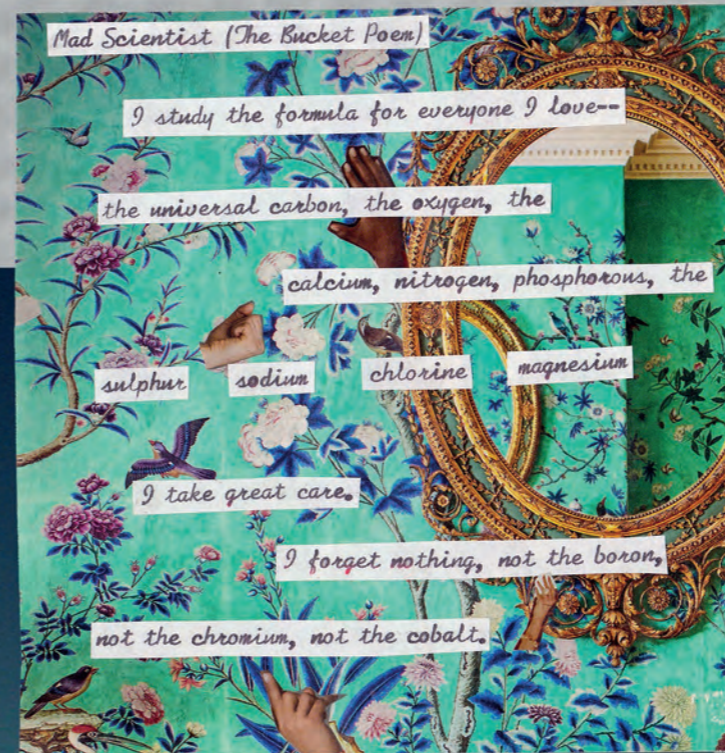 Mad Scientist (The Bucket Poem)
I study the formula for everyone I love--
the universal carbon, the oxygen, the
calcium, nitrogen, phosphorous, the
sulphur sodium chlorine magnesium
I take great care.
I forget nothing, not the boron,
not the chromium, not the cobalt.